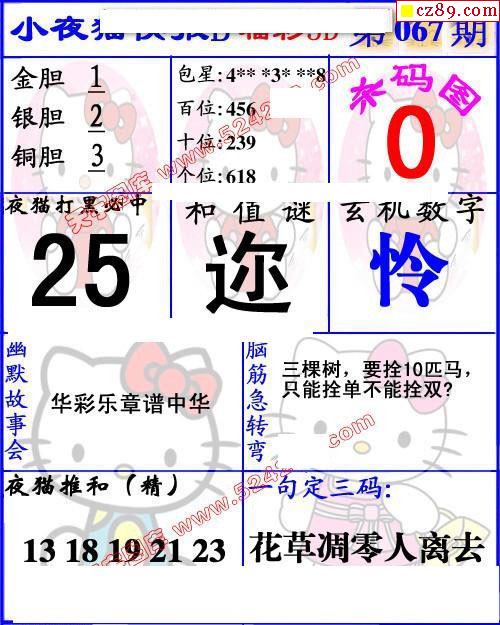 cz89.com
小夜猫快报D 福彩3D 第067期
金胆 1
银胆 2
铜胆 3
包星:4** *3* **8
百位:456
十位:239
个位:618
杀码图
0
夜猫打黑必中
25
和值谜
迩
玄机数字
怜
幽默故事会
华彩乐章谱中华
脑筋急转弯
三棵树，要拴10匹马，
只能拴单不能拴双？
夜猫推和（精）
13 18 19 21 23
一句定三码：
花草凋零人离去